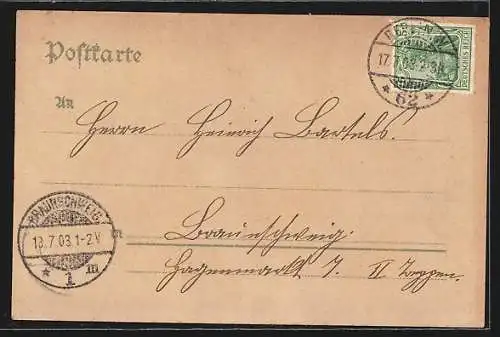 Postkarte
BERLIN.W.
17.7.03.2-3N.
* 62 *
DEUTSCHES REICH
An
Herrn Heinrich Bartels.
BRAUNSCHWEIG.
18.7.03.1-2V.
* 1 m
in
Braunschweig.
Hagenmarkt 7. II Treppen.